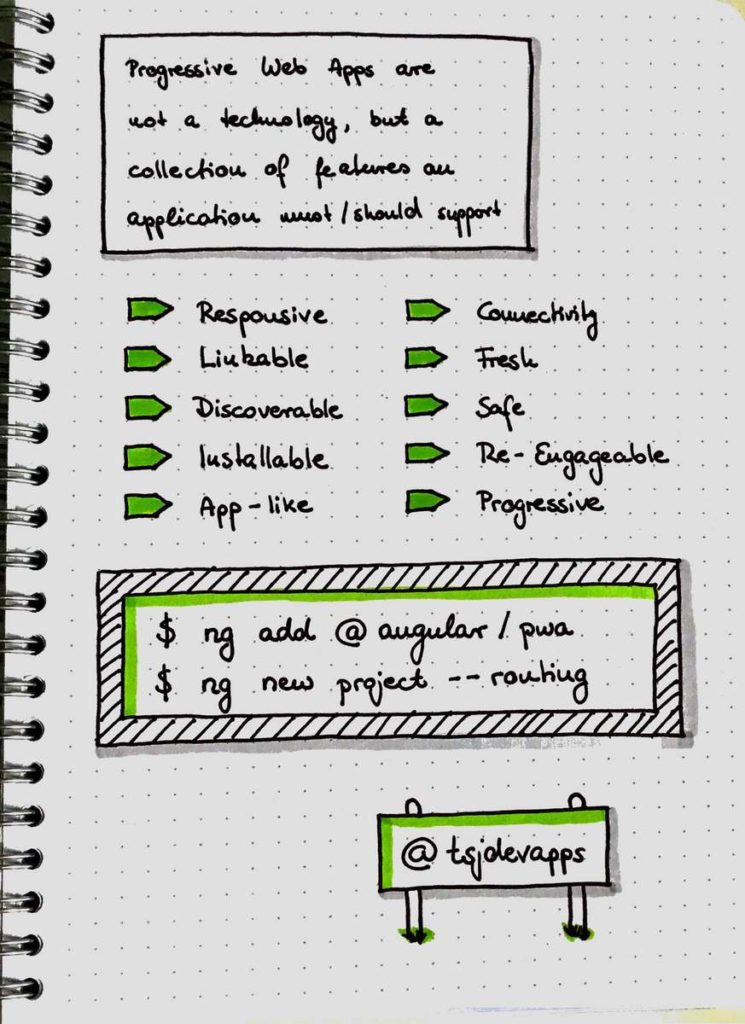 Progressive Web Apps are
not a technology, but a
collection of features an
application must/should support
Responsive
Linkable
Discoverable
Installable
App-like
Connectivity
Fresh
Safe
Re-Engageable
Progressive
$ ng add @angular/pwa
$ ng new project --routing
@tsjdevapps